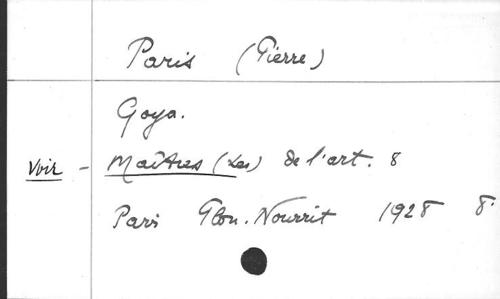 Paris (Pierre)
Goya.
Voir - Maîtres (Les) de l'art. 8
Paris Plon. Nourrit 1928 8°